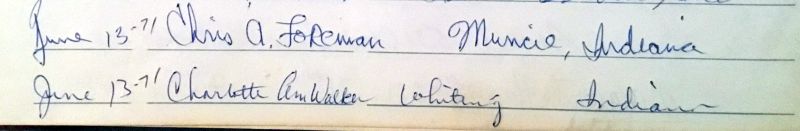 June 13-71 Chris A. Foreman Muncie, Indiana
June 13-71 Charlotte Ann Walker Whiting Indiana